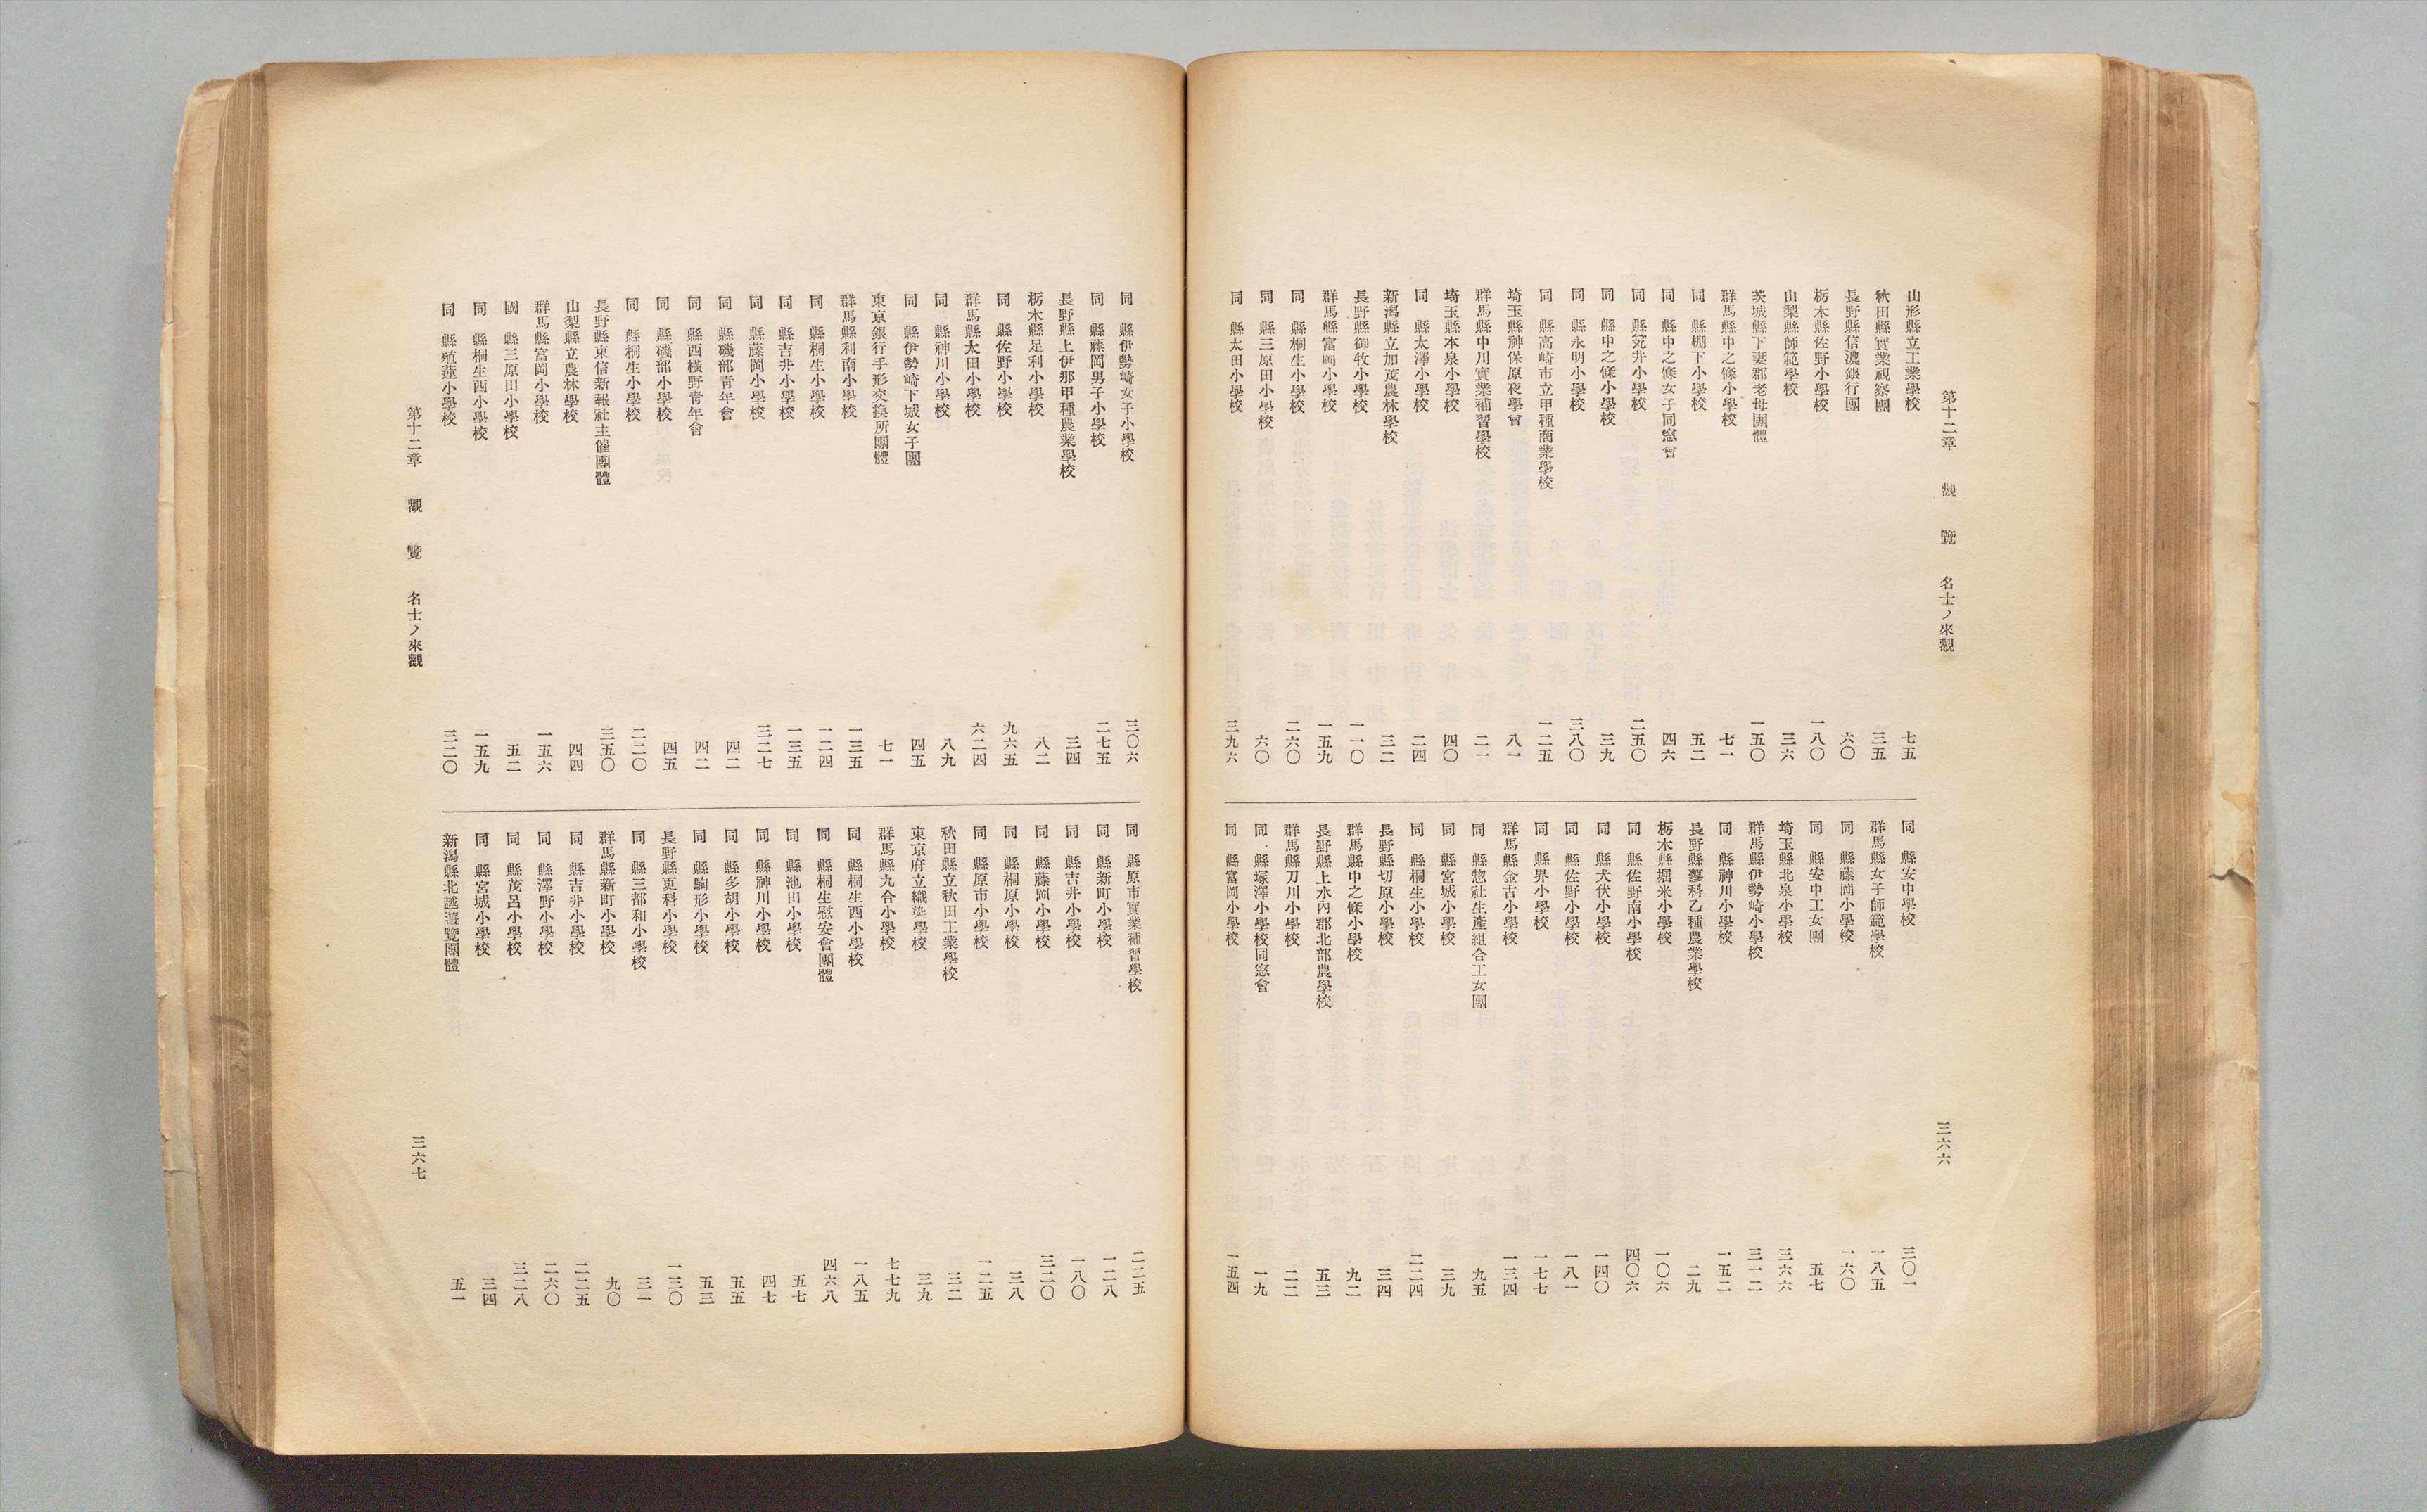 第十二章 觀覽 名士ノ來觀
三六六
山形縣立工業學校 七五
秋田縣實業視察團 三五
長野縣信濃銀行團 六〇
栃木縣佐野小學校 一八〇
山梨縣師範學校 三六
茨城縣下妻郡老母團體 一五〇
群馬縣中之條小學校 七一
同 縣棚下小學校 五二
同 縣中之條女子同窓會 四六
同 縣笂井小學校 二五〇
同 縣中之條小學校 三九
同 縣永明小學校 三八〇
同 縣高崎市立甲種商業學校 一二五
埼玉縣神保原夜學會 八一
群馬縣中川實業補習學校 二一
埼玉縣本泉小學校 四〇
同 縣太澤小學校 二四
新潟縣立加茂農林學校 三二
長野縣御牧小學校 一一〇
群馬縣富岡小學校 一五九
同 縣桐生小學校 二六〇
同 縣三原田小學校 六〇
同 縣太田小學校 三九六
同 縣安中學校 三〇一
群馬縣女子師範學校 一八五
同 縣藤岡小學校 一六〇
同 縣安中工女團 五七
埼玉縣北泉小學校 三六六
群馬縣伊勢崎小學校 三一二
同 縣神川小學校 一五二
長野縣蓼科乙種農業學校 二九
栃木縣堀米小學校 一〇六
同 縣佐野南小學校 四〇六
同 縣犬伏小學校 一四〇
同 縣佐野小學校 一八一
同 縣界小學校 一七七
群馬縣金古小學校 一三四
同 縣惣社生產組合工女團 九五
同 縣宮城小學校 三九
同 縣桐生小學校 二二四
長野縣切原小學校 三四
群馬縣中之條小學校 九二
長野縣上水內郡北部農學校 五三
群馬縣刀川小學校 二二
同 縣塚澤小學校同窓會 一九
同 縣富岡小學校 一五四
同 縣伊勢崎女子小學校 三〇六
同 縣藤岡男子小學校 二七五
長野縣上伊那甲種農業學校 三四
栃木縣足利小學校 八二
同 縣佐野小學校 九六五
群馬縣太田小學校 六二四
同 縣神川小學校 八九
同 縣伊勢崎下城女子團 四五
東京銀行手形交換所團體 七一
群馬縣利南小學校 一三五
同 縣桐生小學校 一二四
同 縣吉井小學校 一三五
同 縣藤岡小學校 三二七
同 縣磯部青年會 四二
同 縣西橫野青年會 四二
同 縣磯部小學校 四五
同 縣桐生小學校 二二〇
長野縣東信新報社主催團體 三五〇
山梨縣立農林學校 四四
群馬縣富岡小學校 一五六
國 縣三原田小學校 五二
同 縣桐生西小學校 一五九
同 縣殖蓮小學校 三二〇
同 縣原市實業補習學校 二二五
同 縣新町小學校 一二八
同 縣吉井小學校 一八〇
同 縣藤岡小學校 三二〇
同 縣桐原小學校 三八
同 縣原市小學校 一二五
秋田縣立秋田工業學校 三二
東京府立織染學校 三九
群馬縣九合小學校 七七九
同 縣桐生西小學校 一八五
同 縣桐生慰安會團體 四六八
同 縣池田小學校 五七
同 縣神川小學校 四七
同 縣多胡小學校 五五
同 縣駒形小學校 五三
長野縣更科小學校 一三〇
同 縣三部和小學校 三一
群馬縣新町小學校 九〇
同 縣吉井小學校 二二五
同 縣澤野小學校 二六〇
同 縣茂呂小學校 三二八
同 縣宮城小學校 三四
新潟縣北越遊覽團體 五一
第十二章 觀覽 名士ノ來觀
三六七